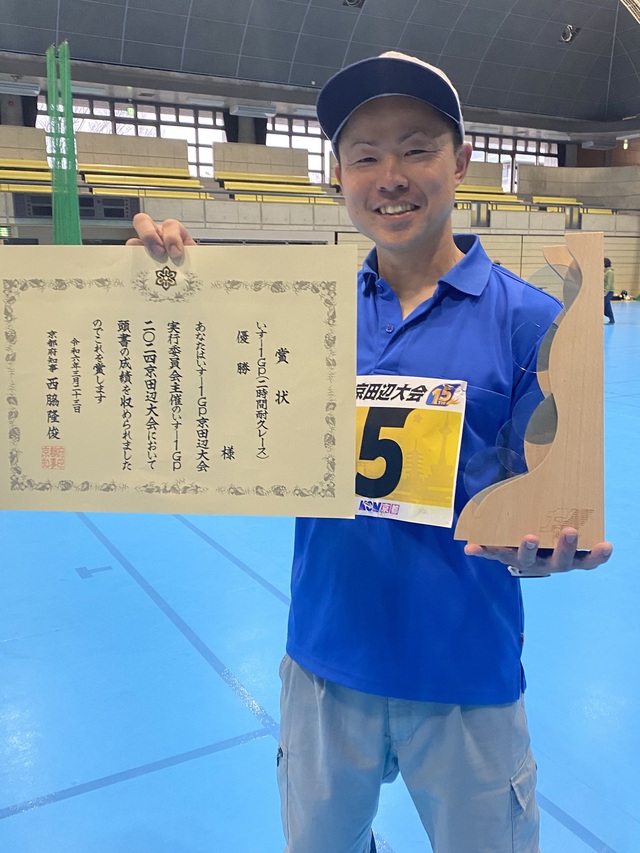 賞状
いすー1GP(二時間耐久レース)
優勝
様
あなたはいすー1GP京田辺大会
実行委員会主催のいすー1GP
二〇二四京田辺大会において
頭書の成績を収められました
のでこれを賞します
令和六年三月二十三日
京都府知事 西脇隆俊
京田辺大会
15
5
京都